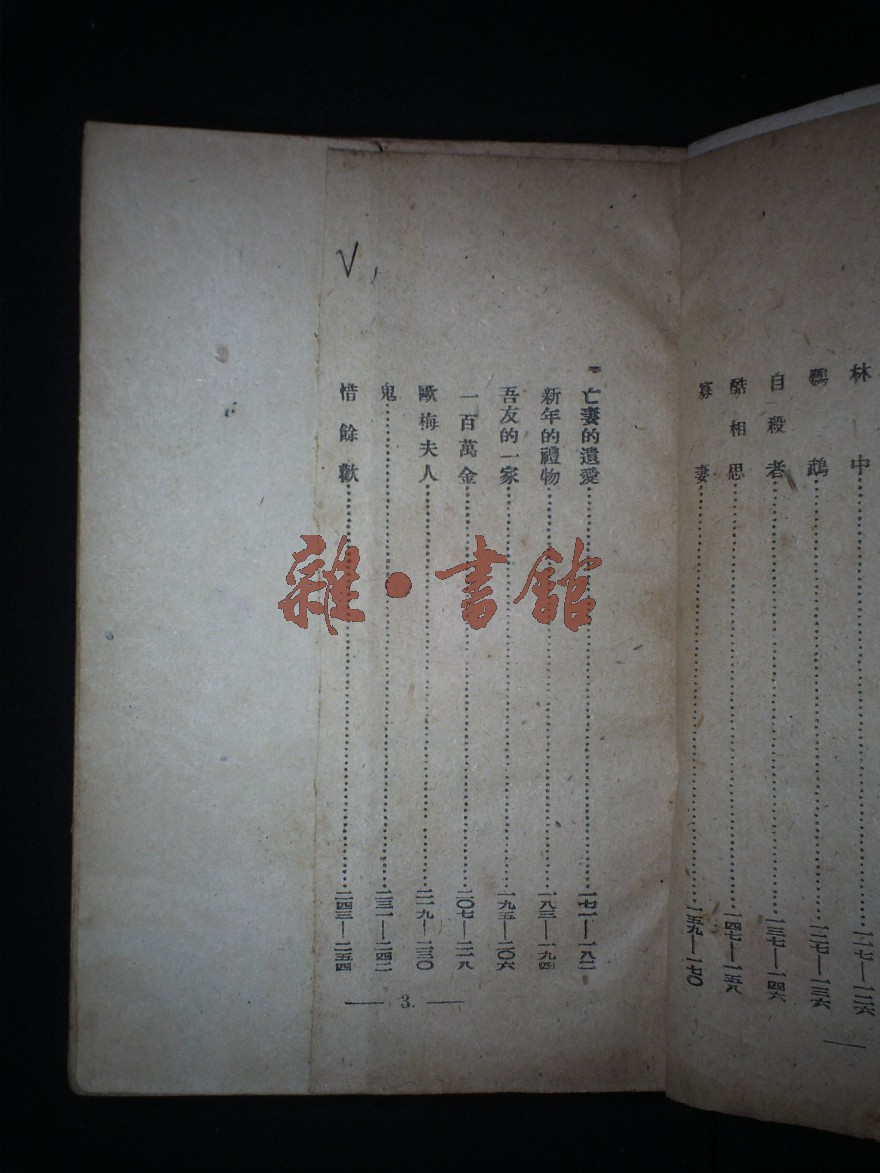 林中……一一七—一二六
鸚鵡……一二七—一三六
自殺者……一三七—一四六
酷相思……一四七—一五八
寡妻……一五九—一七〇
亡妻的遺愛……一七一—一八二
新年的禮物……一八三—一九四
吾友的一家……一九五—二〇六
一百萬金……二〇七—二一八
歐梅夫人……二一九—二三〇
鬼……二三一—二四二
惜餘歡……二四三—二五四
— 3. —
√
雜·書館